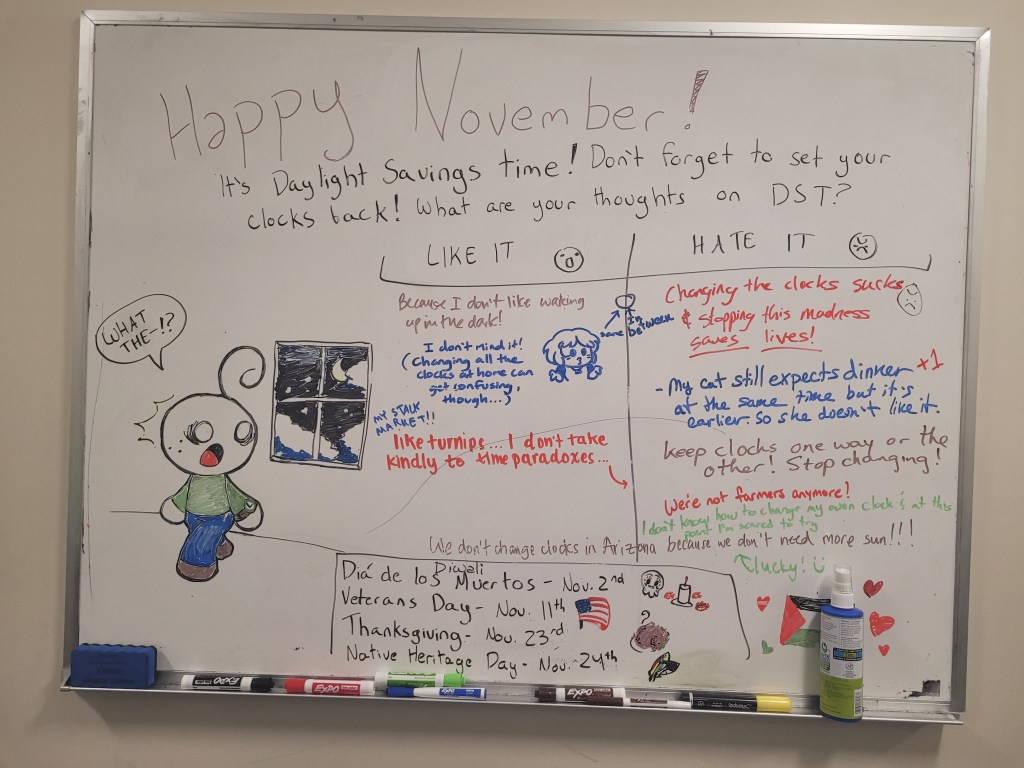 Happy November!
It's Daylight Savings time! Don't forget to set your
clocks back! What are your thoughts on DST?
LIKE IT
Because I don't like waking
up in the dark!
I don't mind it!
(Changing all the
clocks at home can
get confusing,
though...)
MY STALK
MARKET!!
like turnips... I don't take
kindly to time paradoxes...
HATE IT
Changing the clocks sucks
& stopping this madness
saves lives!
- My cat still expects dinner +1
at the same time but it's
earlier. So she doesn't like it.
keep clocks one way or the
other! Stop changing!
We're not farmers anymore!
I don't know how to change my oven clock & at this
point I'm scared to try
We don't change clocks in Arizona because we don't need more sun!!!
lucky!
In
between
WHAT
THE-!?
Diwali
Diá de los Muertos - Nov. 2nd
Veterans Day - Nov. 11th
Thanksgiving - Nov. 23rd
Native Heritage Day - Nov. 24th
?
EXPO
EXPO
EXPO